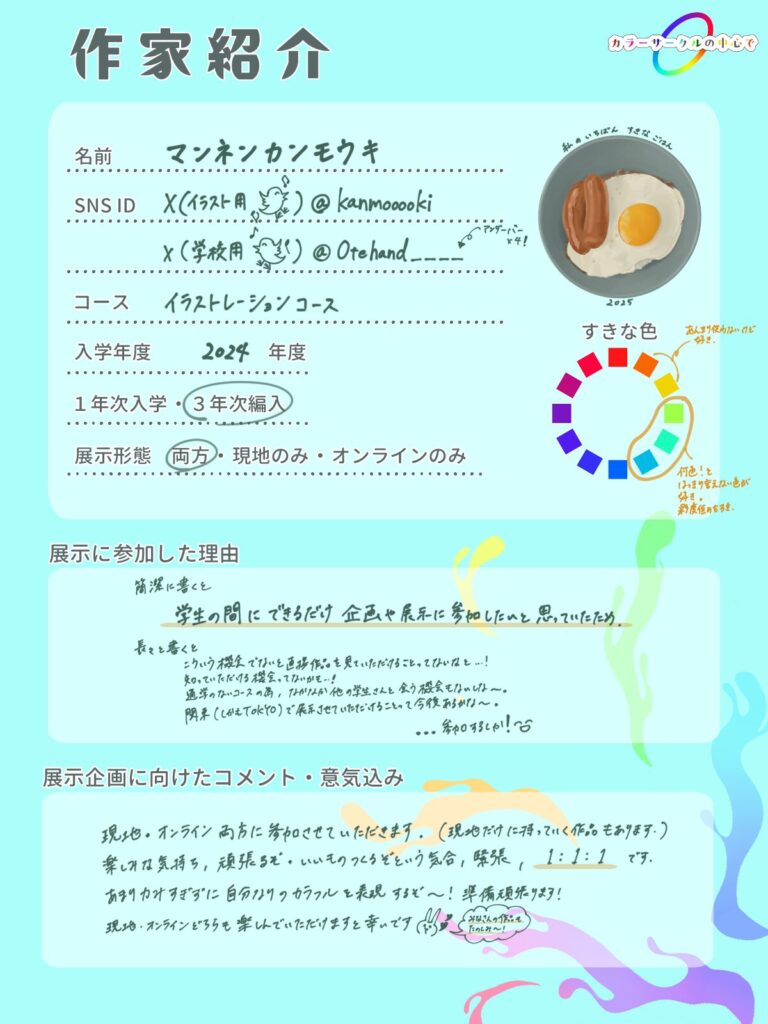 作家紹介
カラーサークルの中心で
名前 マンネンカンモウキ
SNS ID X(イラスト用 ) @kanmooooki
X(学校用 ) @Otehand____
アンダーバー
×4!
コース イラストレーションコース
入学年度 2024 年度
1年次入学・3年次編入
展示形態 両方・現地のみ・オンラインのみ
私のいちばん すきなごはん
2025
すきな色
あんまり使わないけど
好き.
何色!と
はっきり言えない色が
好き。
彩度低めもすき.
展示に参加した理由
簡潔に書くと
学生の間にできるだけ 企画や展示に参加したいと思っていたため.
長々と書くと
こういう機会でないと直接作品を見ていただけることってないなと…!
知っていただける機会ってないかも…!
通学のないコースの為, なかなか他の学生さんと会う機会もないしな〜。
関東(しかもTOKYO)で展示させていただけることって今後あるかな〜。
…参加するしか!
展示企画に向けたコメント・意気込み
現地・オンライン両方に参加させていただきます. (現地だけに持っていく作品もあります.)
楽しみな気持ち, 頑張るぞ・いいものつくるぞという気合, 緊張, 1:1:1 です.
あまり力みすぎずに自分なりのカラフルを表現するぞ〜! 準備頑張ります!
現地・オンラインどちらも楽しんでいただけますと幸いです
みなさんの作品も
たのしみ〜!